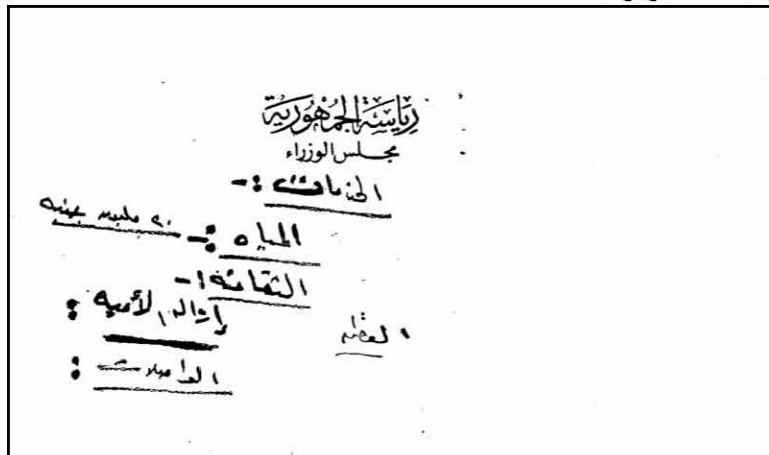 رئاسة الجمهورية
مجلس الوزراء
الخدمات :-
المياه :- ٢٠ مليون جنيه
الثقافة :-
الأمية :
المواصلات :